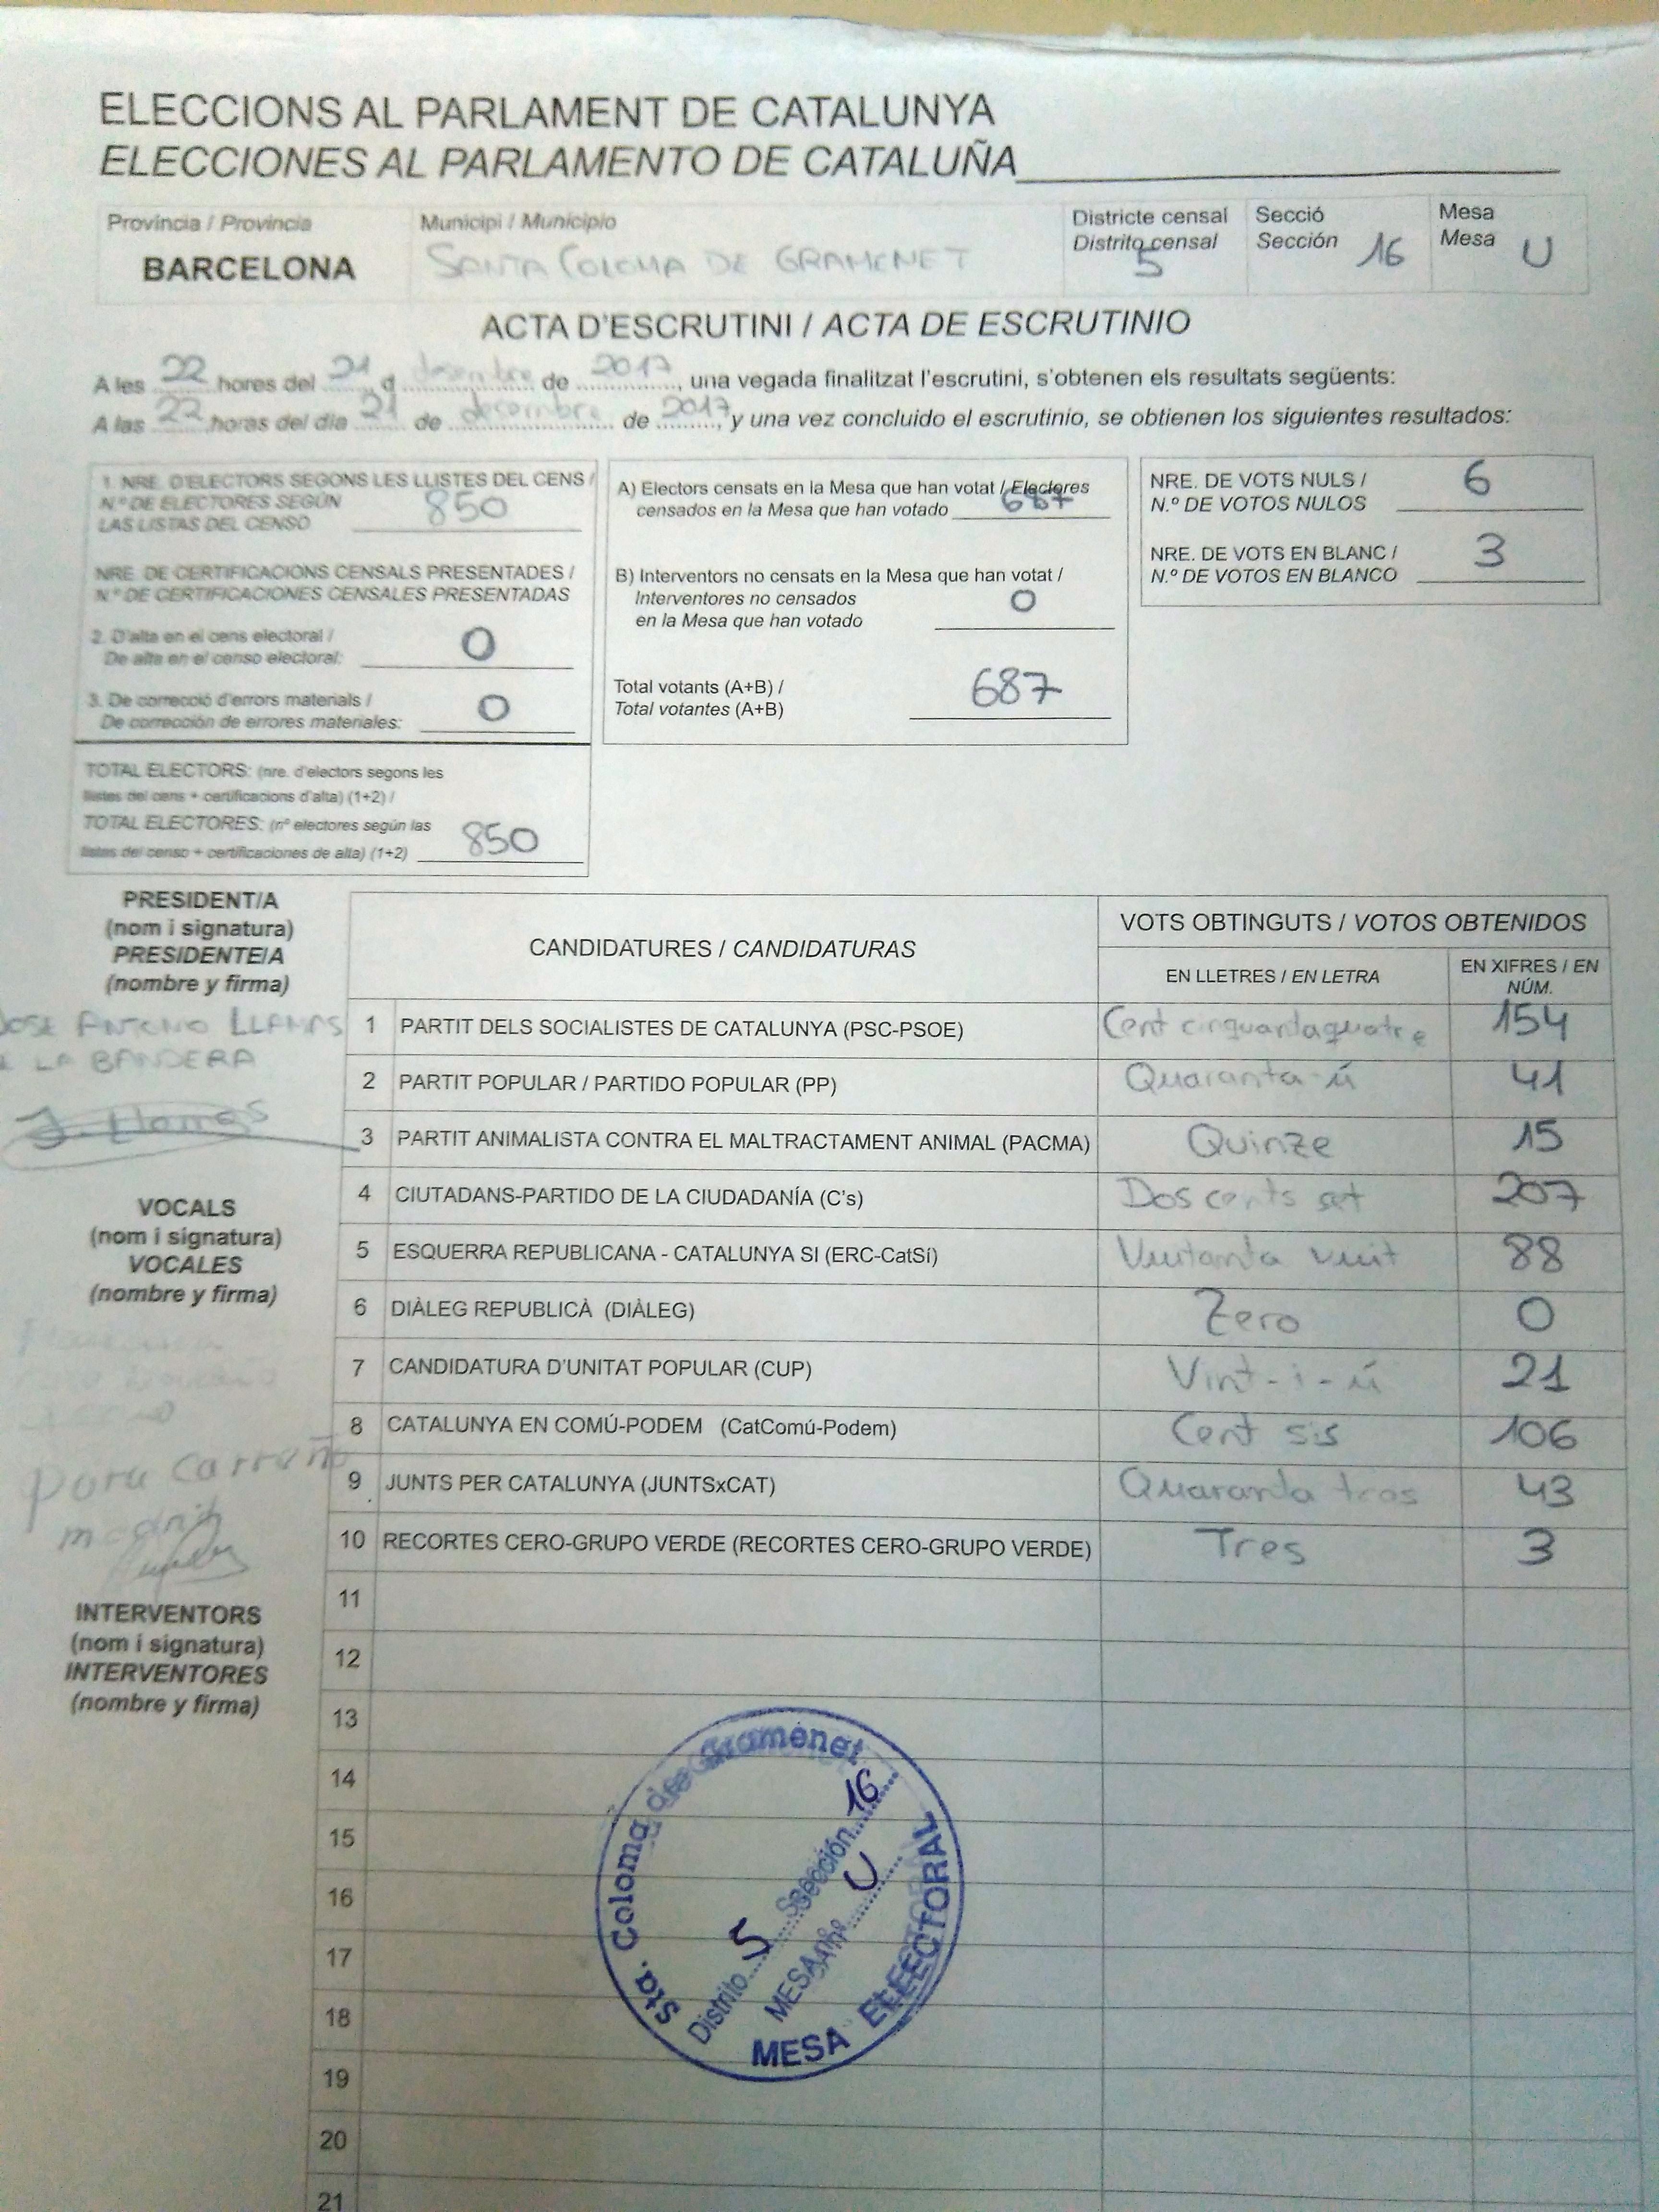 ELECCIONS AL PARLAMENT DE CATALUNYA
ELECCIONES AL PARLAMENTO DE CATALUÑA
Província / Provincia
BARCELONA
Municipi / Municipio
SANTA COLOMA DE GRAMENET
Districte censal
Distrito censal
5
Secció
Sección 16
Mesa
Mesa U
ACTA D'ESCRUTINI / ACTA DE ESCRUTINIO
A les 22 hores del 21 d desembre de 2017, una vegada finalitzat l'escrutini, s'obtenen els resultats següents:
A las 22 horas del día 21 de decembre de 2017, y una vez concluido el escrutinio, se obtienen los siguientes resultados:
1. NRE. D'ELECTORS SEGONS LES LLISTES DEL CENS /
N.º DE ELECTORES SEGÚN
LAS LISTAS DEL CENSO 850
NRE. DE CERTIFICACIONS CENSALS PRESENTADES /
N.º DE CERTIFICACIONES CENSALES PRESENTADAS
2. D'alta en el cens electoral /
De alta en el censo electoral: 0
3. De correcció d'errors materials /
De corrección de errores materiales: 0
TOTAL ELECTORS: (nre. d'electors segons les
llistes del cens + certificacions d'alta) (1+2) /
TOTAL ELECTORES: (nº electores según las
listas del censo + certificaciones de alta) (1+2) 850
A) Electors censats en la Mesa que han votat / Electores
censados en la Mesa que han votado 687
B) Interventors no censats en la Mesa que han votat /
Interventores no censados
en la Mesa que han votado 0
Total votants (A+B) /
Total votantes (A+B) 687
NRE. DE VOTS NULS /
N.º DE VOTOS NULOS 6
NRE. DE VOTS EN BLANC /
N.º DE VOTOS EN BLANCO 3
PRESIDENT/A
(nom i signatura)
PRESIDENTE/A
(nombre y firma)
JOSE ANTONIO LLAMAS
LA BANDERA
J. Llamas
VOCALS
(nom i signatura)
VOCALES
(nombre y firma)
INTERVENTORS
(nom i signatura)
INTERVENTORES
(nombre y firma)
CANDIDATURES / CANDIDATURAS
VOTS OBTINGUTS / VOTOS OBTENIDOS
EN LLETRES / EN LETRA
EN XIFRES / EN NÚM.
1 PARTIT DELS SOCIALISTES DE CATALUNYA (PSC-PSOE) Cent cinquantaquatre 154
2 PARTIT POPULAR / PARTIDO POPULAR (PP) Quaranta-ú 41
3 PARTIT ANIMALISTA CONTRA EL MALTRACTAMENT ANIMAL (PACMA) Quinze 15
4 CIUTADANS-PARTIDO DE LA CIUDADANÍA (C's) Dos cents set 207
5 ESQUERRA REPUBLICANA - CATALUNYA SI (ERC-CatSí) Vuitanta vuit 88
6 DIÀLEG REPUBLICÀ (DIÀLEG) Zero 0
7 CANDIDATURA D'UNITAT POPULAR (CUP) Vint-i-ú 21
8 CATALUNYA EN COMÚ-PODEM (CatComú-Podem) Cent sis 106
9 JUNTS PER CATALUNYA (JUNTSxCAT) Quaranta tres 43
10 RECORTES CERO-GRUPO VERDE (RECORTES CERO-GRUPO VERDE) Tres 3
11
12
13
14
15
16
17
18
19
20
21
Sta. Coloma de Gramenet
Distrito 5 Sección 16
MESA U
MESA ELECTORAL